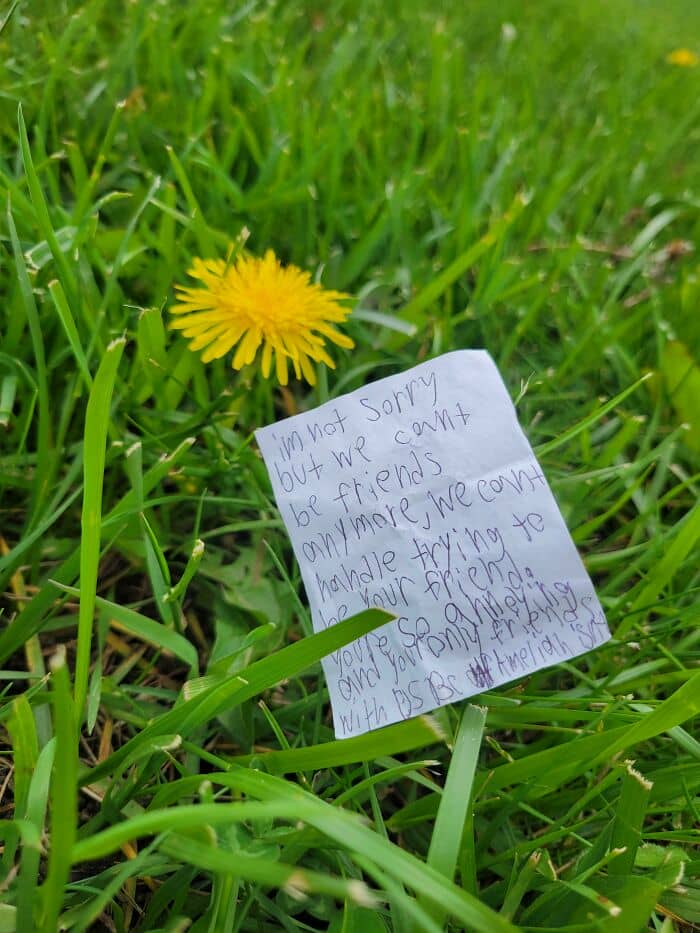 im not sorry
but we cant
be friends
anymore, we cant
handle trying to
be your friend.
your so annoying
and your only friends
with us BC Ameliah's